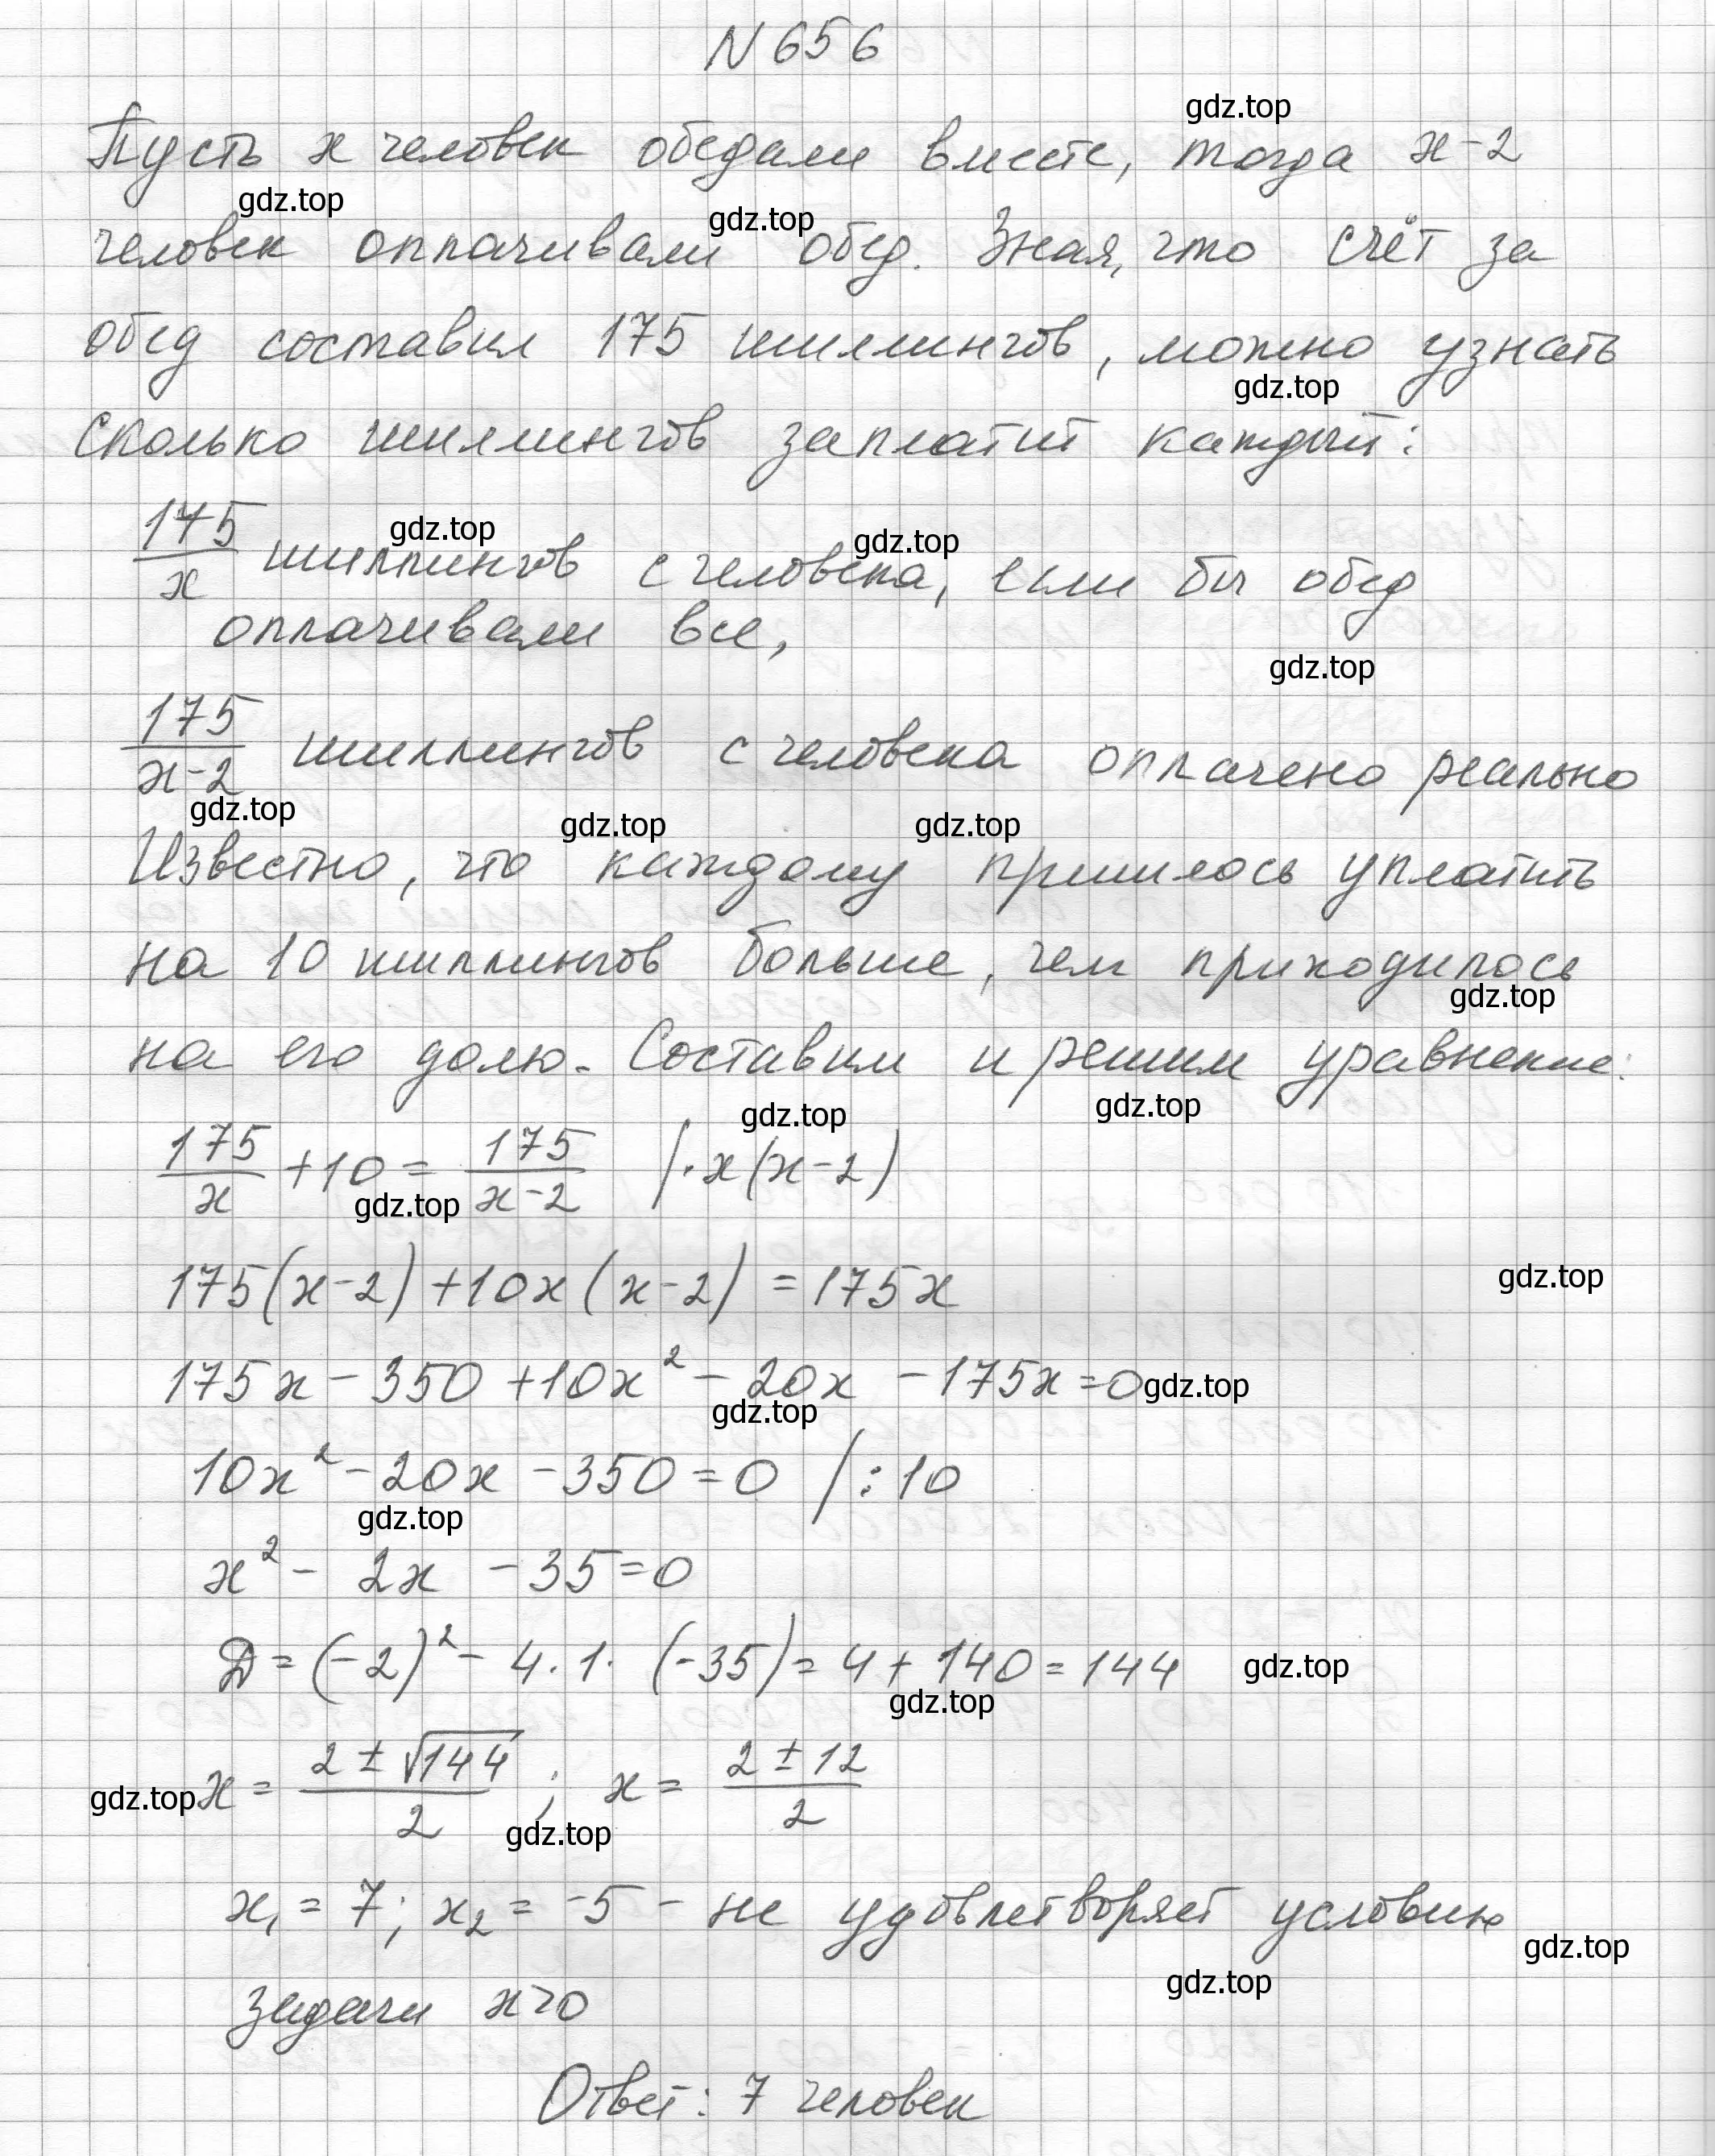 N 656
gdz.top
Пусть x человек обедали вместе, тогда x-2
gdz.top
gdz.top
человек оплачивали обед. Зная, что счёт за
обед составил 175 шиллингов, можно узнать
gdz.top
сколько шиллингов заплатит каждый:
gdz.top
gdz.top
175/x шиллингов с человека, если бы обед
оплачивали все,
gdz.top
175/(x-2) шиллингов с человека оплачено реально
gdz.top
gdz.top
gdz.top
Известно, что каждому пришлось уплатить
на 10 шиллингов больше, чем приходилось
gdz.top
на его долю. Составим и решим уравнение:
gdz.top
gdz.top
175/x + 10 = 175/(x-2) | · x(x-2)
gdz.top
175(x-2) + 10x(x-2) = 175x
gdz.top
175x - 350 + 10x² - 20x - 175x = 0
gdz.top
gdz.top
10x² - 20x - 350 = 0 | :10
gdz.top
x² - 2x - 35 = 0
D = (-2)² - 4·1·(-35) = 4 + 140 = 144
gdz.top
gdz.top
x = (2 ± √144)/2 ; x = (2 ± 12)/2
gdz.top
gdz.top
x₁ = 7; x₂ = -5 - не удовлетворяет условию
gdz.top
gdz.top
задачи x>0
Ответ: 7 человек